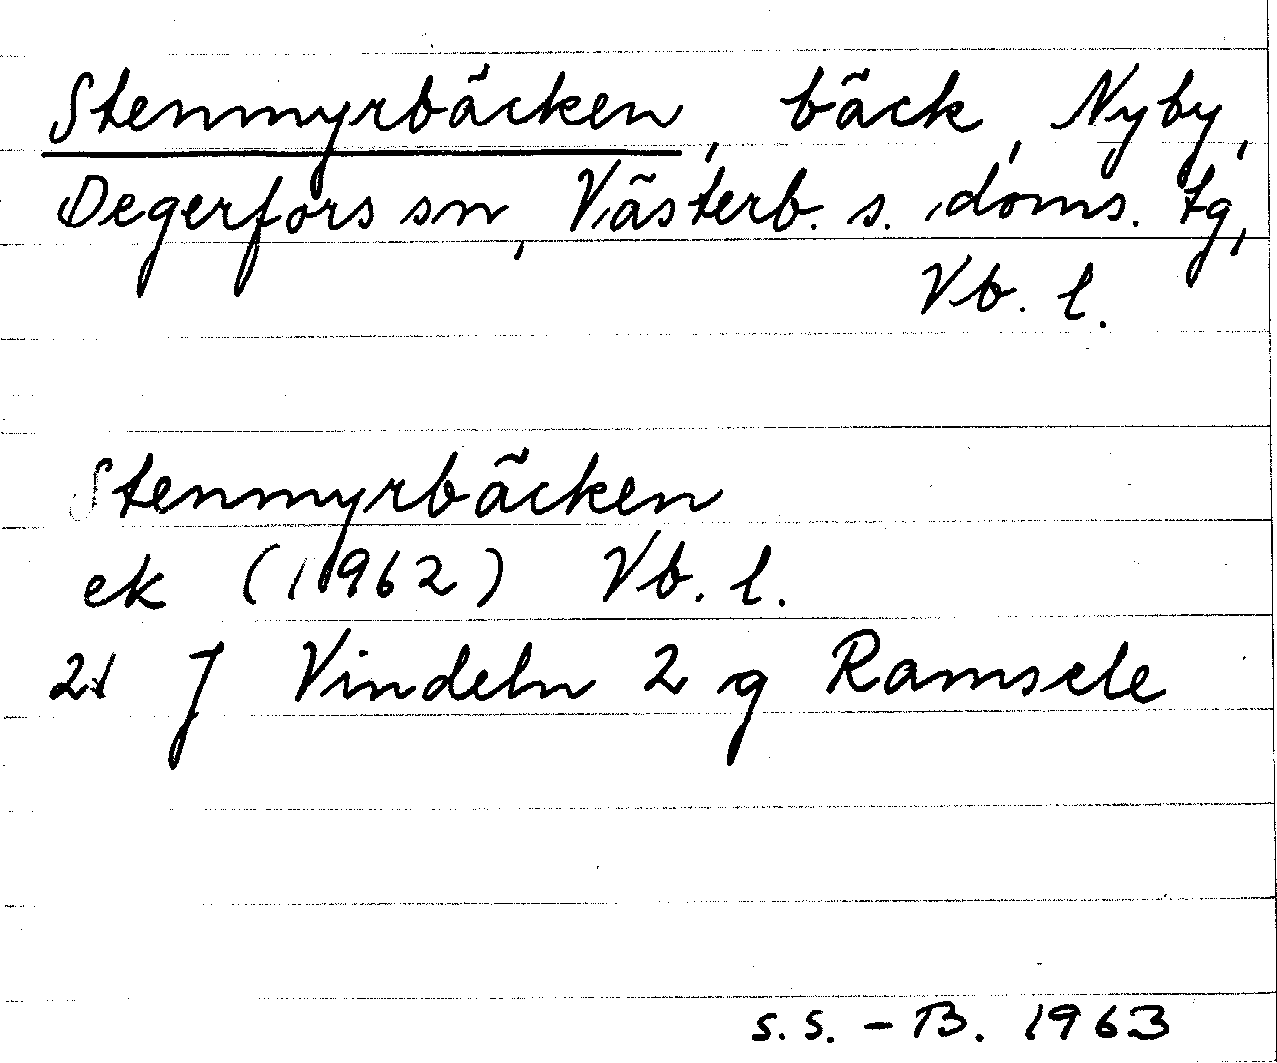 Stenmyrbäcken, bäck, Nyby,
Degerfors sn, Västerb. s. doms. tg,
Vb. l.
Stenmyrbäcken
ek (1962) Vb. l.
21 J Vindeln 2 g Ramsele
S.S. - B. 1963